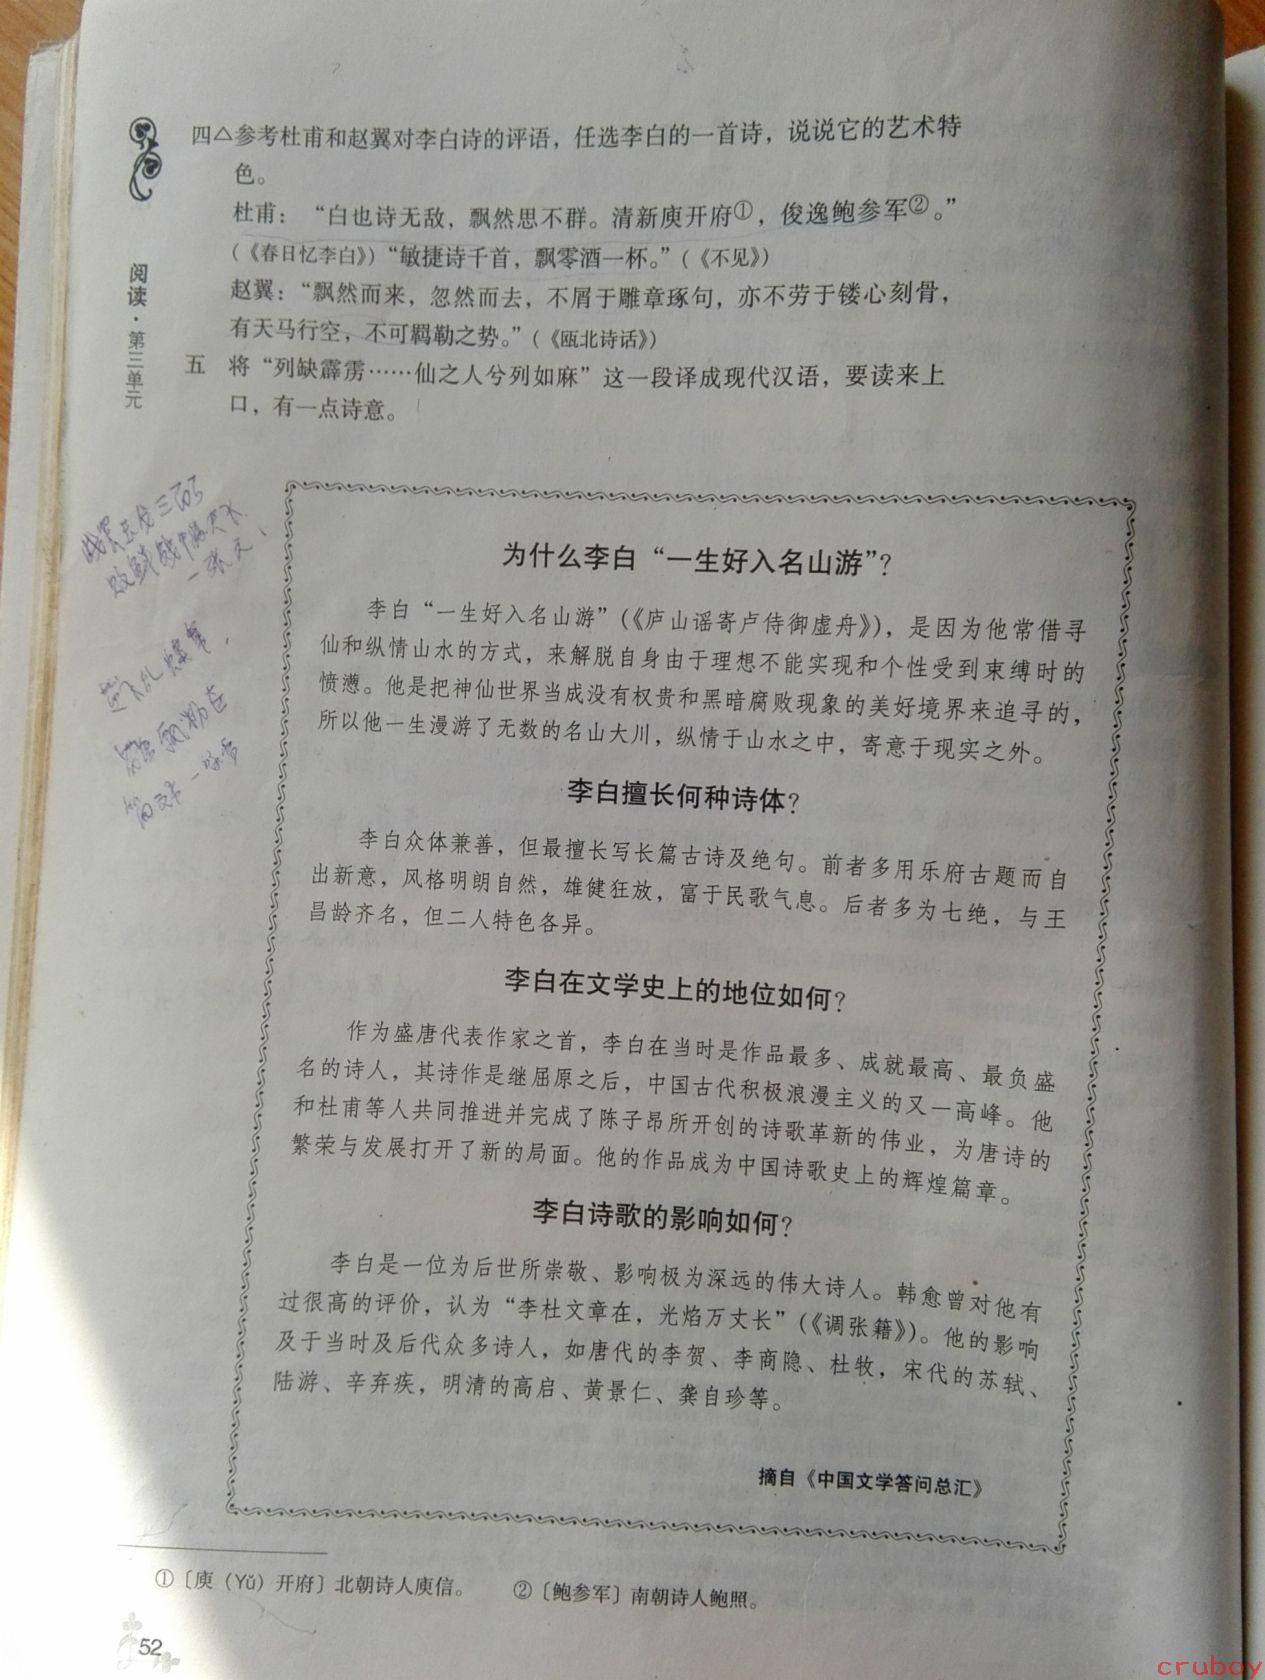 四△参考杜甫和赵翼对李白诗的评语，任选李白的一首诗，说说它的艺术特
色。
杜甫：“白也诗无敌，飘然思不群。清新庾开府①，俊逸鲍参军②。”
（《春日忆李白》）“敏捷诗千首，飘零酒一杯。”（《不见》）
赵翼：“飘然而来，忽然而去，不屑于雕章琢句，亦不劳于镂心刻骨，
有天马行空，不可羁勒之势。”（《瓯北诗话》）
五 将“列缺霹雳……仙之人兮列如麻”这一段译成现代汉语，要读来上
口，有一点诗意。
阅读·第三单元
为什么李白“一生好入名山游”？
李白“一生好入名山游”（《庐山谣寄卢侍御虚舟》），是因为他常借寻
仙和纵情山水的方式，来解脱自身由于理想不能实现和个性受到束缚时的
愤懑。他是把神仙世界当成没有权贵和黑暗腐败现象的美好境界来追寻的，
所以他一生漫游了无数的名山大川，纵情于山水之中，寄意于现实之外。
李白擅长何种诗体？
李白众体兼善，但最擅长写长篇古诗及绝句。前者多用乐府古题而自
出新意，风格明朗自然，雄健狂放，富于民歌气息。后者多为七绝，与王
昌龄齐名，但二人特色各异。
李白在文学史上的地位如何？
作为盛唐代表作家之首，李白在当时是作品最多、成就最高、最负盛
名的诗人，其诗作是继屈原之后，中国古代积极浪漫主义的又一高峰。他
和杜甫等人共同推进并完成了陈子昂所开创的诗歌革新的伟业，为唐诗的
繁荣与发展打开了新的局面。他的作品成为中国诗歌史上的辉煌篇章。
李白诗歌的影响如何？
李白是一位为后世所崇敬、影响极为深远的伟大诗人。韩愈曾对他有
过很高的评价，认为“李杜文章在，光焰万丈长”（《调张籍》）。他的影响
及于当时及后代众多诗人，如唐代的李贺、李商隐、杜牧，宋代的苏轼、
陆游、辛弃疾，明清的高启、黄景仁、龚自珍等。
摘自《中国文学答问总汇》
①〔庾（Yǔ）开府〕北朝诗人庾信。 ②〔鲍参军〕南朝诗人鲍照。
52
cruboy